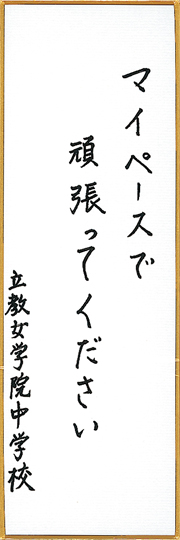 マイペースで
頑張ってください
立教女学院中学校